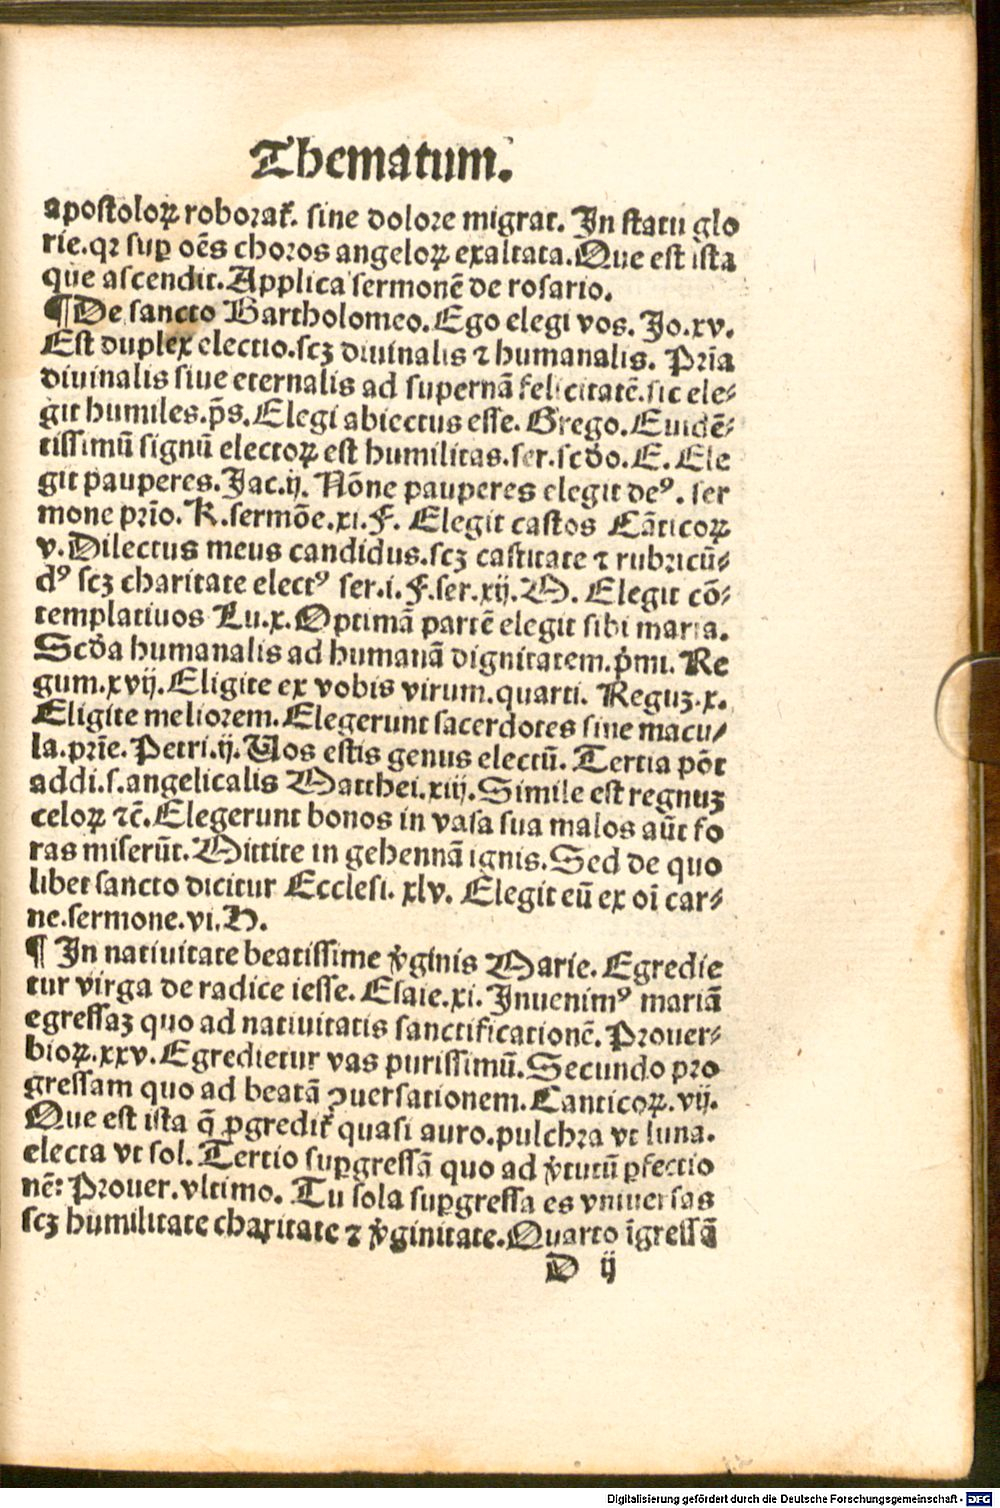 Thematum.
apostoloꝝ roborat᷑. sine dolore migrat. In statu glo
rie.qꝛ suꝑ oēs choros angeloꝝ exaltata.Que est ista
que ascendit.Applica sermonē de rosario.
¶De sancto Bartholomeo.Ego elegi vos. Jo.xv.
Est duplex electio.scꝫ diuinalis ⁊ humanalis. Prīa
diuinalis siue eternalis ad supernā felicitatē.sic ele⸗
git humiles.p̄s.Elegi abiectus esse. Grego.Euidē⸗
tissimū signū electoꝝ est humilitas.ser.scd̓o.E. Ele
git pauperes.Jac.ij. Nōne pauperes elegit deꝰ. ser
mone prīo. K.sermōe.xi.F. Elegit castos Cāticoꝝ
v.Dilectus meus candidus.scꝫ castitate ⁊ rubricū⸗
dꝰ scꝫ charitate electꝰ ser.i.F.ser.xij.O. Elegit cō⸗
templatiuos Lu.x.Optimā partē elegit sibi maria.
Scd̓a humanalis ad humanā dignitatem.p̓mi. Re
gum.xvij.Eligite ex vobis virum.quarti. Reguꝫ.x.
Eligite meliorem.Elegerunt sacerdotes sine macu⸗
la.prīe. Petri.ij.Uos estis genus electū. Tertia pōt
addi.s.angelicalis Matthei.xiij.Simile est regnuꝫ
celoꝝ ⁊c̄.Elegerunt bonos in vasa sua malos aūt fo
ras miserūt.Mittite in gehennā ignis.Sed de quo
libet sancto dicitur Ecclesi. xlv. Elegit eū ex oī car⸗
ne.sermone.vi.H.
¶ In natiuitate beatissime v̓ginis Marie.Egredie
tur virga de radice iesse.Esaie.xi.Inuenimꝰ mariā
egressaꝫ quo ad natiuitatis sanctificationē.Prouer⸗
bioꝝ.xxv.Egredietur vas purissimū.Secundo pro
gressam quo ad beatā ꝯuersationem.Canticoꝝ.vij.
Que est ista q̄ ꝓgredit᷑ quasi auro.pulchra vt luna.
electa vt sol.Tertio suꝑgressā quo ad v̓tutū ꝑfectio
nē: Prouer.vltimo. Tu sola suꝑgressa es vniuersas
scꝫ humilitate charitate ⁊ v̓ginitate.Quarto īgressā
D ij
Digitalisierung gefördert durch die Deutsche Forschungsgemeinschaft - DFG